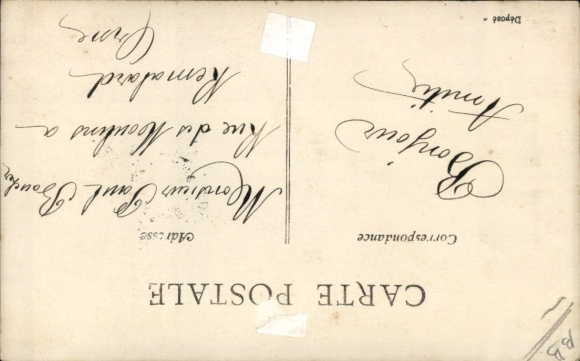 CARTE POSTALE
Correspondance
Adresse
Bonjour
Amitiés
Monsieur Paul Boucher
Rue des Moulins a
Remalard
Orne
Déposé
B.B